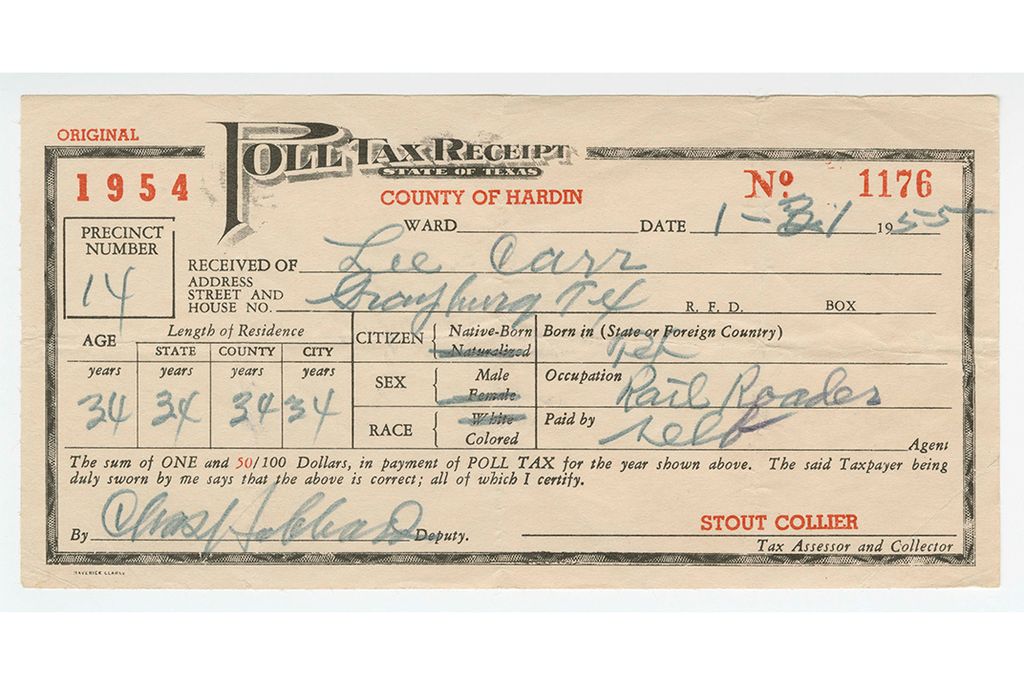 ORIGINAL
POLL TAX RECEIPT
STATE OF TEXAS
1954
COUNTY OF HARDIN
Nº 1176
WARD DATE 1-31 1955
PRECINCT
NUMBER
14
RECEIVED OF Lee Carr
ADDRESS
STREET AND
HOUSE NO. Grayburg Tex R. F. D. BOX
AGE
Length of Residence
STATE COUNTY CITY
years years years years
34 34 34 34
CITIZEN { Native-Born
Naturalized
SEX { Male
Female
RACE { White
Colored
Born in (State or Foreign Country)
Tex
Occupation Rail Roader
Paid by self
Agent
The sum of ONE and 50/100 Dollars, in payment of POLL TAX for the year shown above. The said Taxpayer being
duly sworn by me says that the above is correct; all of which I certify.
By Chas Hubbard Deputy.
STOUT COLLIER
Tax Assessor and Collector
MAVERICK CLARKE